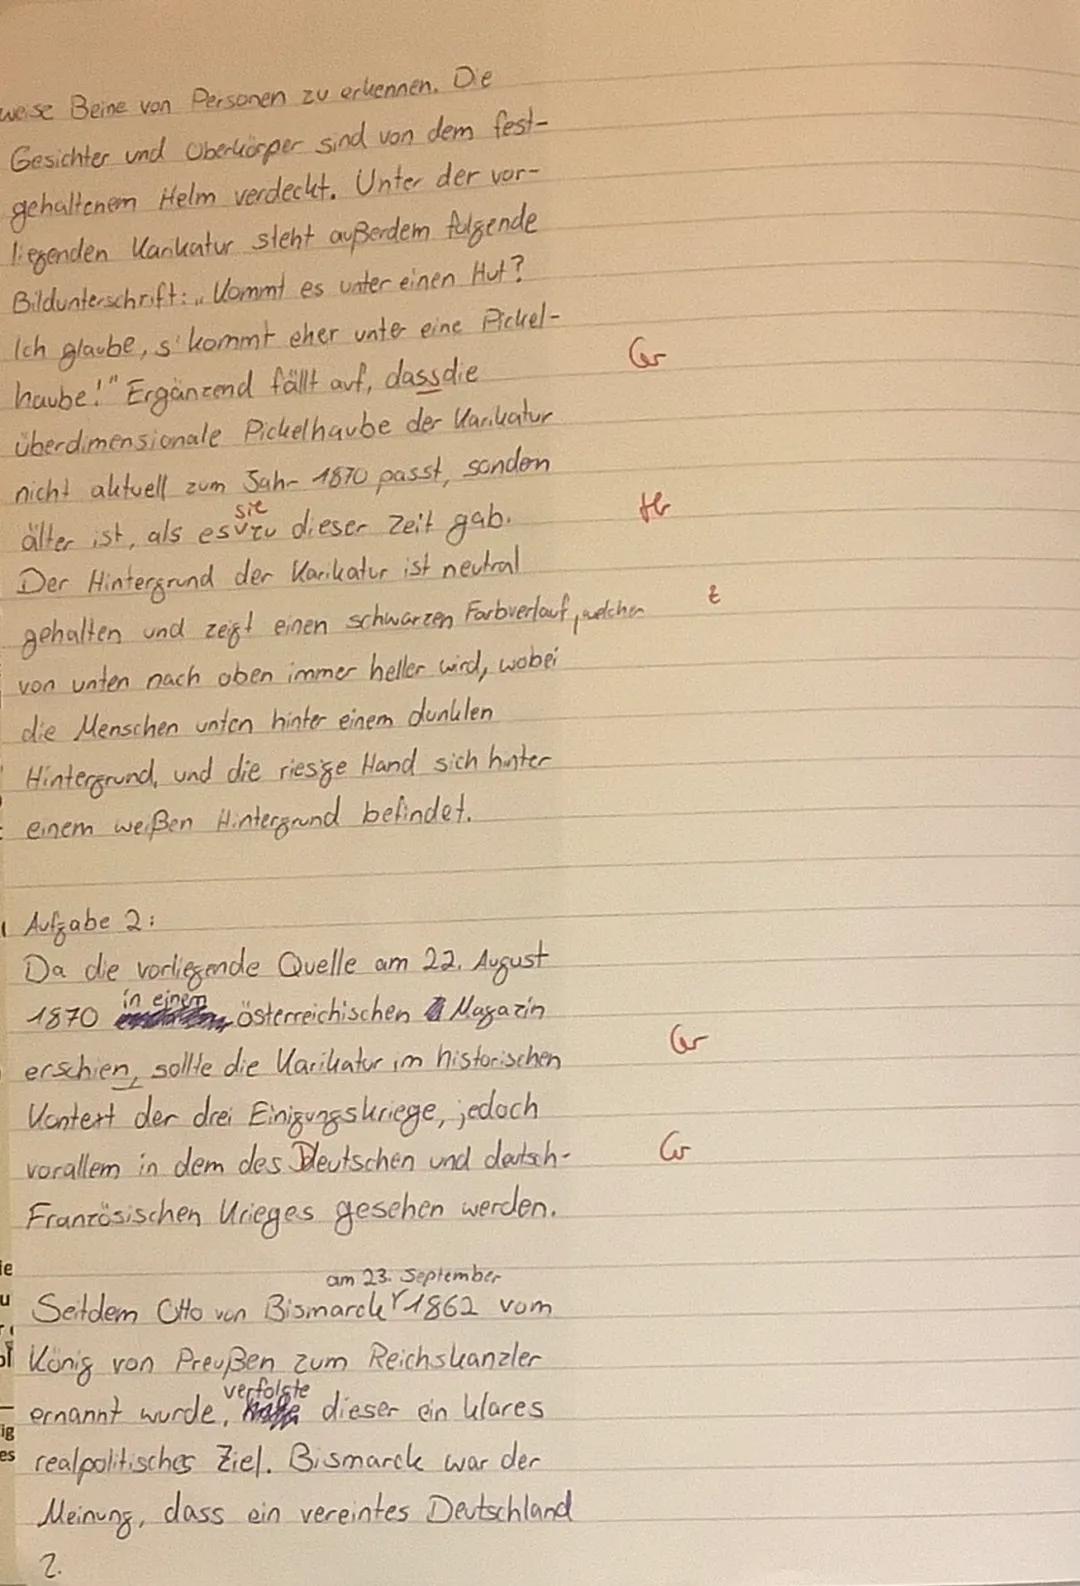 weise Beine von Personen zu erkennen. Die
Gesichter und Oberkörper sind von dem fest-
gehaltenem Helm verdeckt. Unter der vor-
liegenden Karikatur steht außerdem folgende
Bildunterschrift: „Kommt es unter einen Hut?
Ich glaube, s' kommt eher unter eine Pickel-
haube!" Ergänzend fällt auf, dass die
Gr
überdimensionale Pickelhaube der Karikatur
nicht aktuell zum Jahr 1870 passt, sondern
sie
älter ist, als es zu dieser Zeit gab.
Der Hintergrund der Karikatur ist neutral
gehalten und zeigt einen schwarzen Farbverlauf, welcher
von unten nach oben immer heller wird, wobei
die Menschen unten hinter einem dunklen
Hintergrund, und die riesige Hand sich hinter
einem weißen Hintergrund befindet.
Aufgabe 2:
Da die vorliegende Quelle am 22. August
1870 in einem österreichischen Magazin
erschien, sollte die Karikatur im historischen
Gr
Kontext der drei Einigungskriege, jedoch
vorallem in dem des Deutschen und deutsch-
Gr
Französischen Krieges gesehen werden.
am 23. September
Seitdem Otto von Bismarck 1862 vom
König von Preußen zum Reichskanzler
ernannt wurde, verfolgte dieser ein klares
realpolitisches Ziel. Bismarck war der
Meinung, dass ein vereintes Deutschland
2.